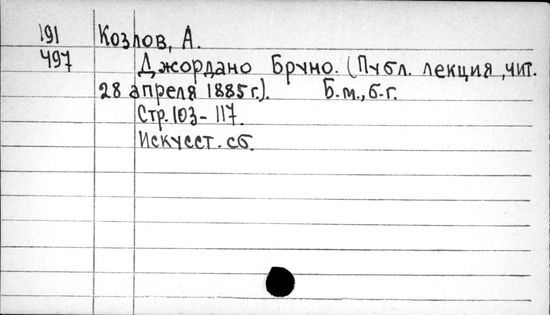 191 Козлов, А.
497 Джордано Бруно. (Публ. лекция, чит.
28 апреля 1885 г.). Б.м., б.г.
Стр. 103-117.
Искусст. сб.